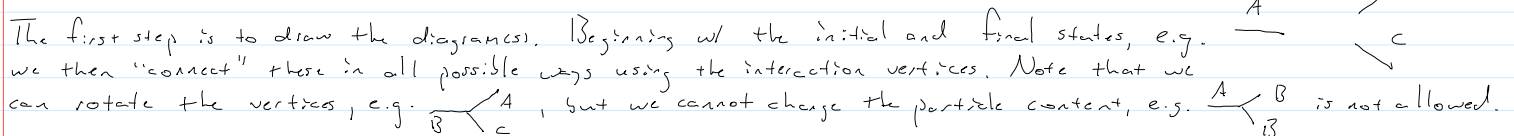 The first step is to draw the diagram(s). Beginning w/ the initial and final states, e.g. A C
we then "connect" these in all possible ways using the interaction vertices. Note that we
can rotate the vertices, e.g. B A C , but we cannot change the particle content, e.g. A B B is not allowed.